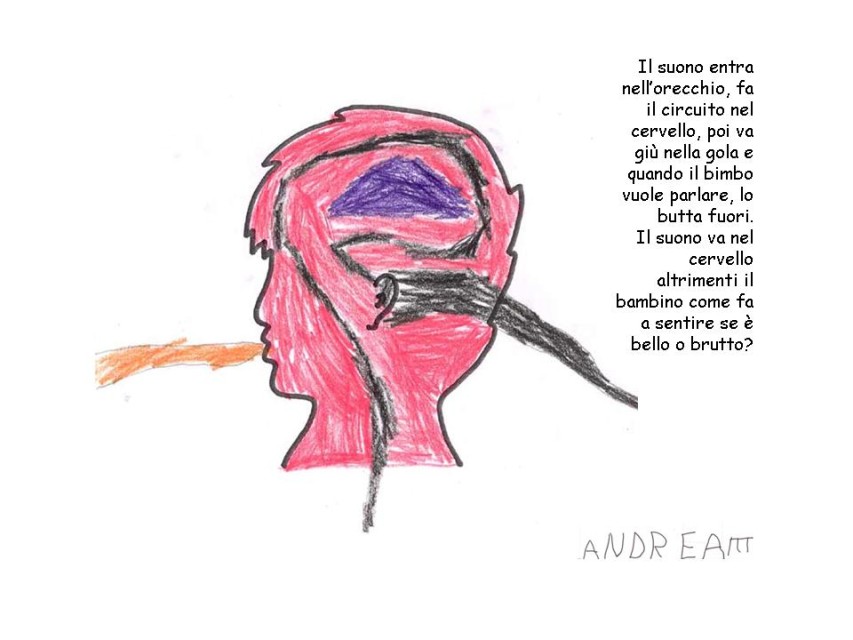 Il suono entra
nell'orecchio, fa
il circuito nel
cervello, poi va
giù nella gola e
quando il bimbo
vuole parlare, lo
butta fuori.
Il suono va nel
cervello
altrimenti il
bambino come fa
a sentire se è
bello o brutto?